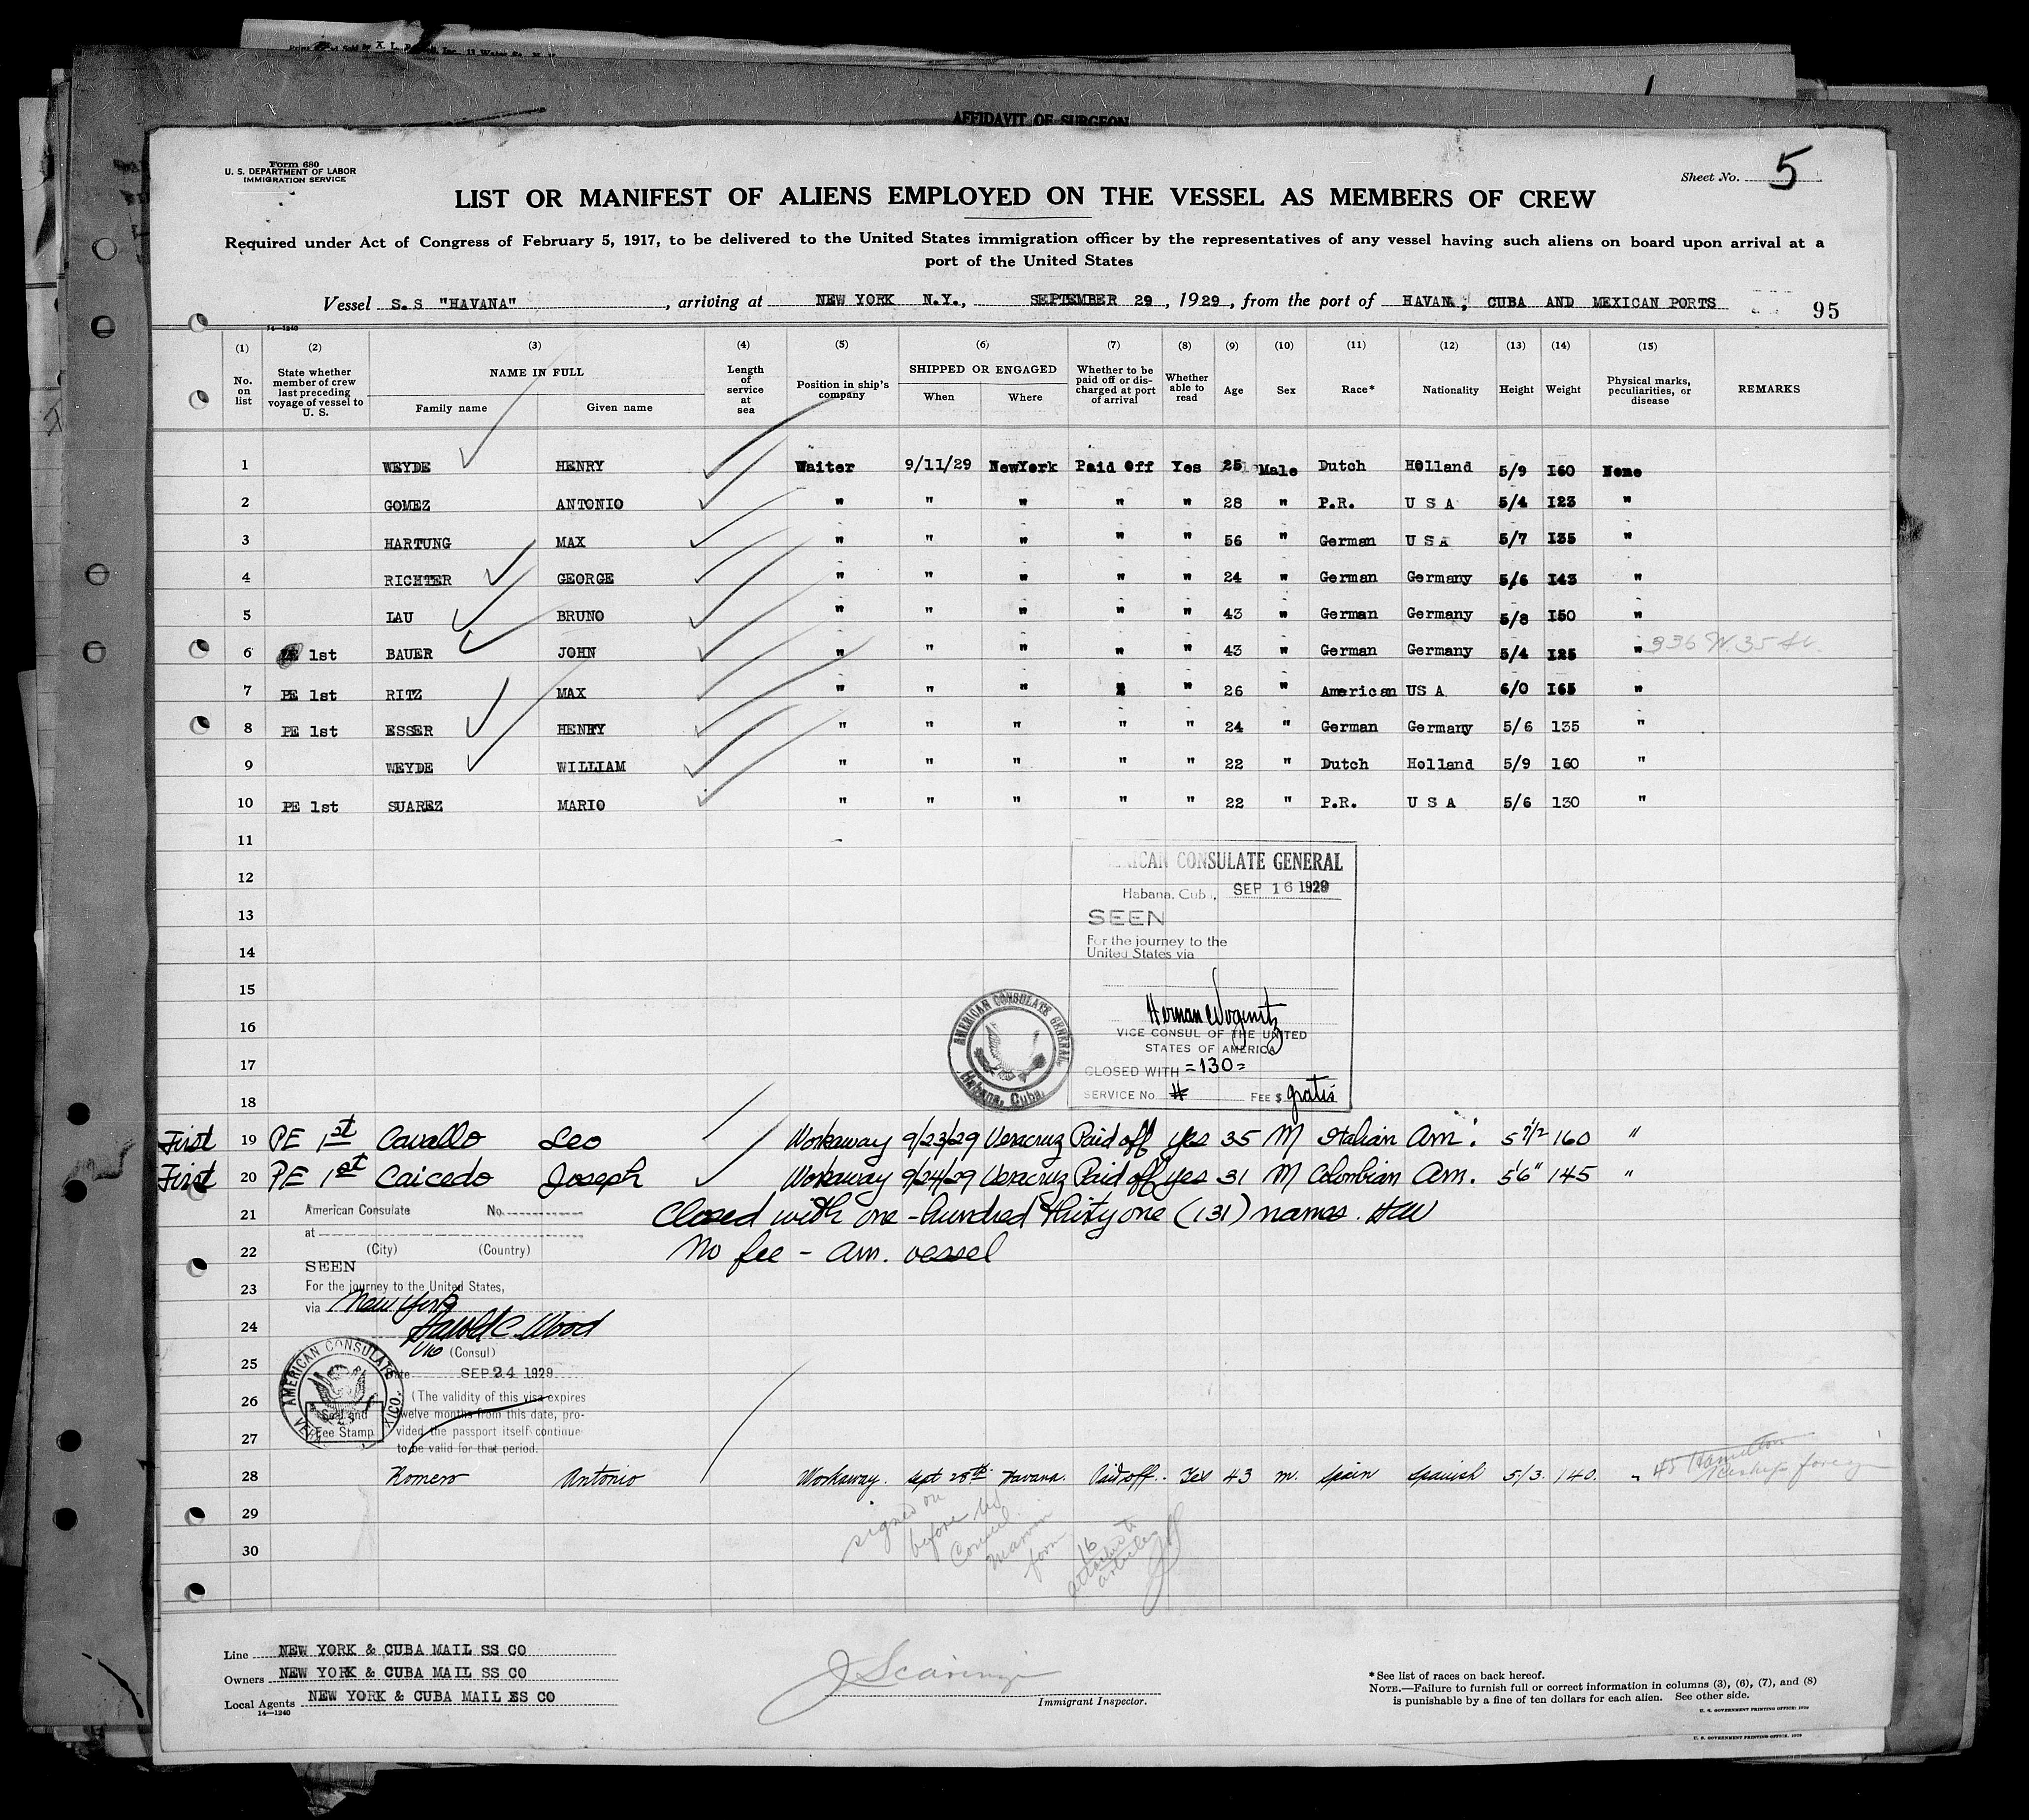 AFFIDAVIT OF SURGEON
Form 680
U. S. DEPARTMENT OF LABOR
IMMIGRATION SERVICE
Sheet No. 5
LIST OR MANIFEST OF ALIENS EMPLOYED ON THE VESSEL AS MEMBERS OF CREW
Required under Act of Congress of February 5, 1917, to be delivered to the United States immigration officer by the representatives of any vessel having such aliens on board upon arrival at a
port of the United States
Vessel S.S "HAVANA", arriving at NEW YORK N.Y., SEPTEMBER 29, 1929, from the port of HAVANA, CUBA AND MEXICAN PORTS 95
14—1240
(1) (2) (3) (4) (5) (6) (7) (8) (9) (10) (11) (12) (13) (14) (15)
No. on list
State whether member of crew last preceding voyage of vessel to U. S.
NAME IN FULL
Family name Given name
Length of service at sea
Position in ship's company
SHIPPED OR ENGAGED
When Where
Whether to be paid off or discharged at port of arrival
Whether able to read
Age Sex Race* Nationality Height Weight
Physical marks, peculiarities, or disease
REMARKS
1 WEYDE HENRY Waiter 9/11/29 NewYork Paid Off Yes 25 Male Dutch Holland 5/9 I60 None
2 GOMEZ ANTONIO " " " " " 28 " P.R. U S A 5/4 I23 "
3 HARTUNG MAX " " " " " 56 " German U S A 5/7 I35 "
4 RICHTER GEORGE " " " " " 24 " German Germany 5/6 I43 "
5 LAU BRUNO " " " " " 43 " German Germany 5/8 I50 "
6 PE 1st BAUER JOHN " " " " " 43 " German Germany 5/4 I25 " 336 W. 35 St.
7 PE 1st RITZ MAX " " " " " 26 " American US A 6/0 I65 "
8 PE 1st ESSER HENRY " " " " " 24 " German Germany 5/6 135 "
9 WEYDE WILLIAM " " " " " 22 " Dutch Holland 5/9 160 "
10 PE 1st SUAREZ MARIO " " " " " 22 " P.R. U S A 5/6 130 "
11
12
13
14
15
16
17
18
AMERICAN CONSULATE GENERAL
Habana, Cuba, SEP 16 1929
SEEN
For the journey to the
United States via
VICE CONSUL OF THE UNITED
STATES OF AMERICA
CLOSED WITH =130=
SERVICE No. # FEE $ gratis
AMERICAN CONSULATE GENERAL
Habana, Cuba.
First 19 PE 1st Cavallo Leo Workaway 9/23/29 Veracruz Paid off yes 35 M Italian Am. 5 7/12 160 "
First 20 PE 1st Caicedo Joseph Workaway 9/24/29 Veracruz Paid off yes 31 M Colombian Am. 5'6" 145 "
21 Closed with one-hundred thirty one (131) names. HCW
22 No fee - Am. vessel
23
24
25
26
27
American Consulate No.
at
(City) (Country)
SEEN
For the journey to the United States,
via New York
Harold C. Wood
Vice (Consul)
Date SEP 24 1929
(The validity of this visa expires
twelve months from this date, pro-
vided the passport itself continue
to be valid for that period.
AMERICAN CONSULATE
Seal and
Fee Stamp
28 Romero Antonio Workaway. Sept 25th. Havana. Paid off. Yes 43 m. Spain Spanish 5/3. 140. " 45 Hamilton foreign
29
30
signed on
before
Consul
form
16
attached to
articles
Line NEW YORK & CUBA MAIL SS CO
Owners NEW YORK & CUBA MAIL SS CO
Local Agents NEW YORK & CUBA MAIL SS CO
14—1240
Immigrant Inspector.
*See list of races on back hereof.
NOTE.—Failure to furnish full or correct information in columns (3), (6), (7), and (8)
is punishable by a fine of ten dollars for each alien. See other side.
U. S. GOVERNMENT PRINTING OFFICE: 1929
U. S. GOVERNMENT PRINTING OFFICE: 1929